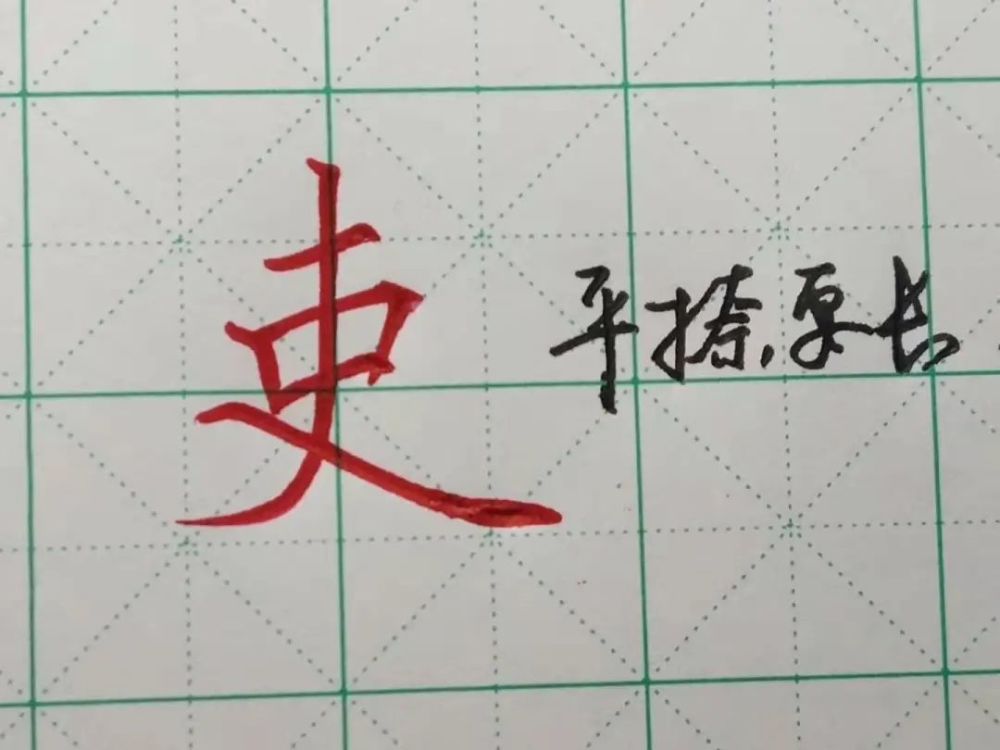 吏 平捺,厚长